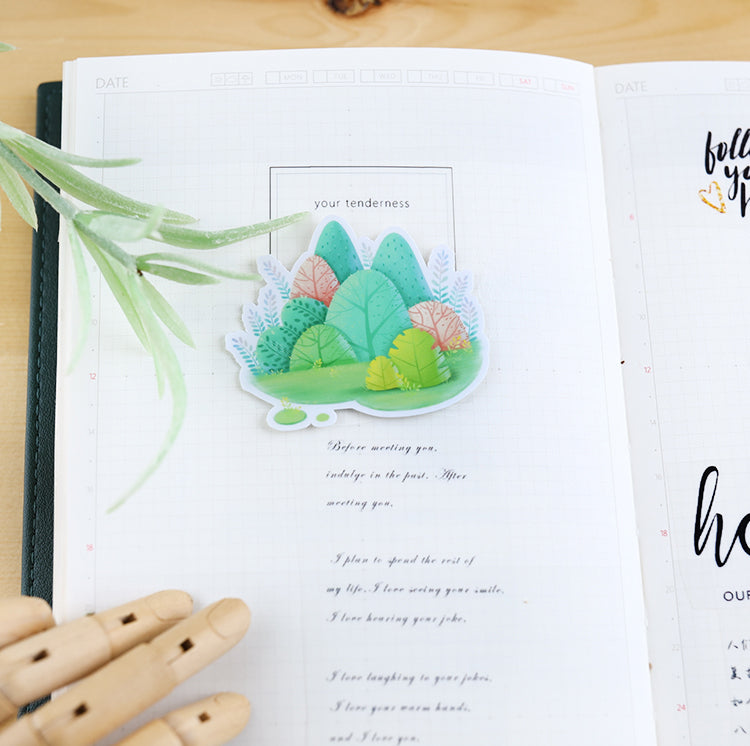 DATE
MON TUE WED THU FRI SAT SUN
your tenderness
Before meeting you,
indulge in the past. After
meeting you,
I plan to spend the rest of
my life. I love seeing your smile,
I love hearing your joke,
I love laughing to your jokes,
I love your warm hands,
and I love you.
12
18
DATE
6
12
18
24
OUR
人们